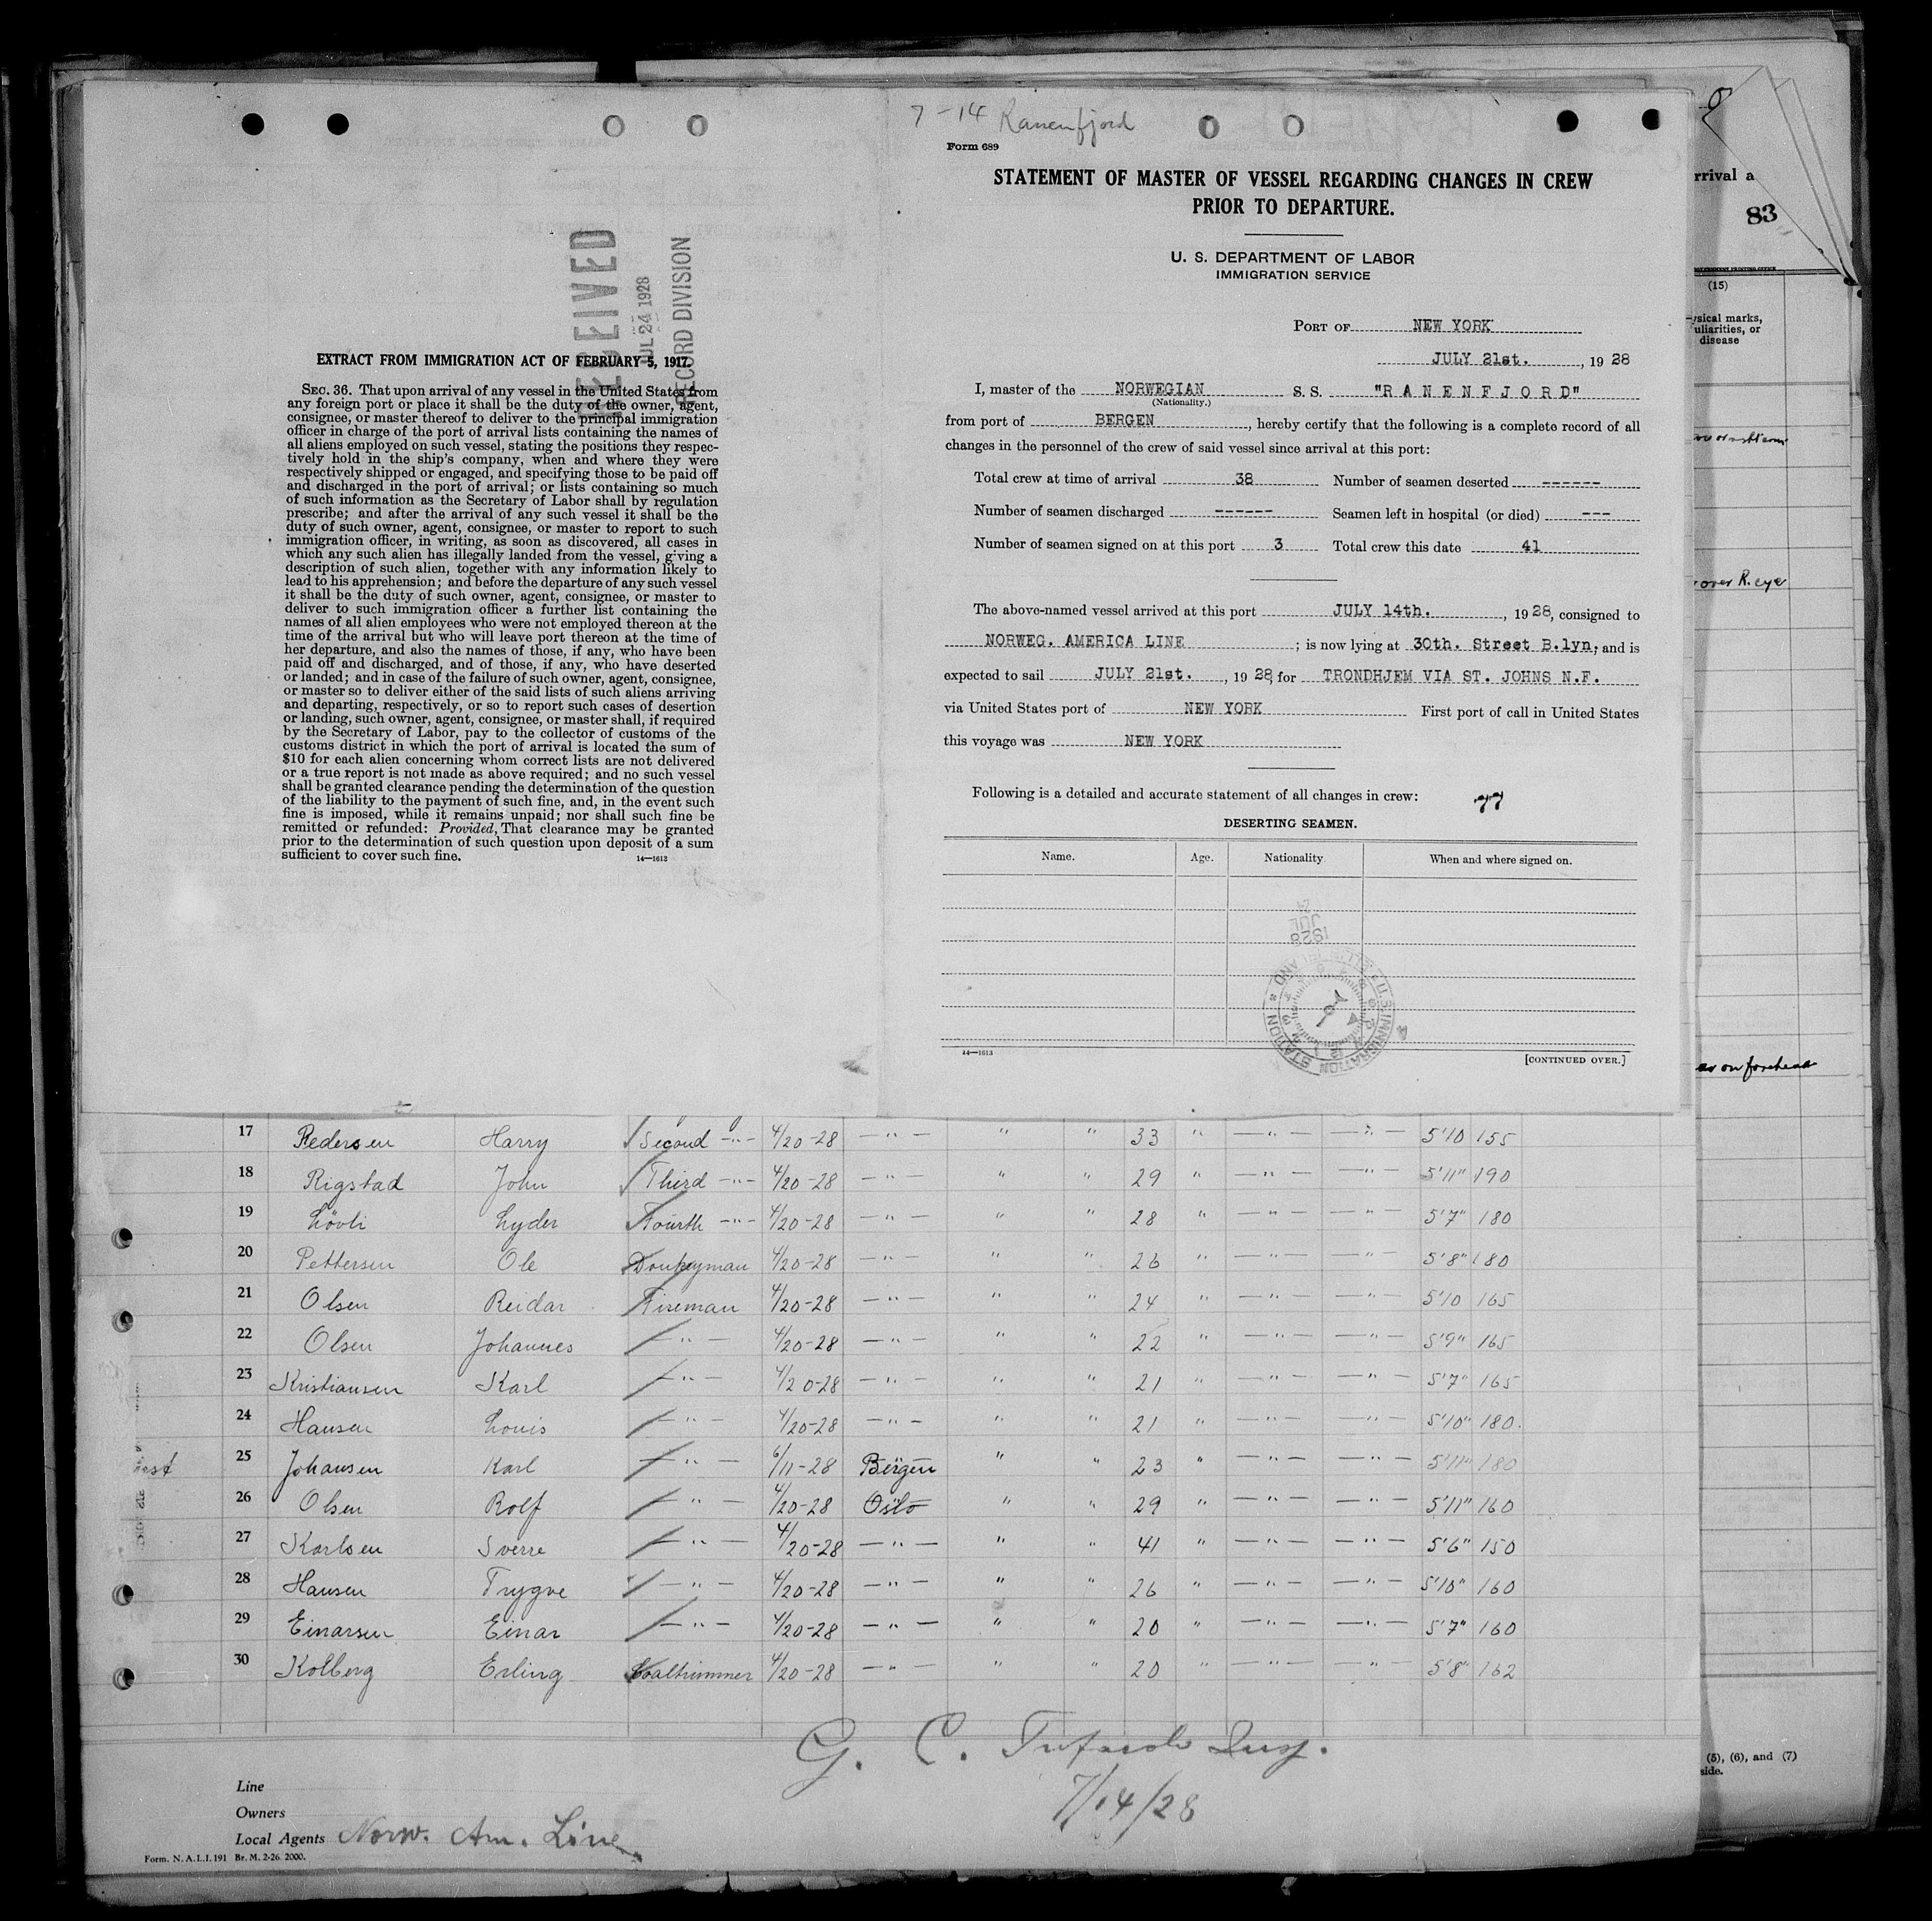 7-14 Ranenfjord
Form 689
STATEMENT OF MASTER OF VESSEL REGARDING CHANGES IN CREW
PRIOR TO DEPARTURE.
U. S. DEPARTMENT OF LABOR
IMMIGRATION SERVICE
PORT OF NEW YORK
JULY 21st. , 19 28
I, master of the NORWEGIAN S. S. "R A N E N F J O R D"
(Nationality.)
from port of BERGEN , hereby certify that the following is a complete record of all
changes in the personnel of the crew of said vessel since arrival at this port:
Total crew at time of arrival 38 Number of seamen deserted ------
Number of seamen discharged ------ Seamen left in hospital (or died) ---
Number of seamen signed on at this port 3 Total crew this date 41
The above-named vessel arrived at this port JULY 14th. , 19 28, consigned to
NORWEG. AMERICA LINE ; is now lying at 30th. Street B.lyn, and is
expected to sail JULY 21st. , 19 28, for TRONDHJEM VIA ST. JOHNS N.F.
via United States port of NEW YORK First port of call in United States
this voyage was NEW YORK
Following is a detailed and accurate statement of all changes in crew: 77
DESERTING SEAMEN.
Name. Age. Nationality. When and where signed on.
1928
JUL
24
U.S. IMMIGRATION STATION
14—1613 [CONTINUED OVER.]
RECEIVED
JUL 24 1928
RECORD DIVISION
EXTRACT FROM IMMIGRATION ACT OF FEBRUARY 5, 1917.
SEC. 36. That upon arrival of any vessel in the United States from
any foreign port or place it shall be the duty of the owner, agent,
consignee, or master thereof to deliver to the principal immigration
officer in charge of the port of arrival lists containing the names of
all aliens employed on such vessel, stating the positions they respec-
tively hold in the ship's company, when and where they were
respectively shipped or engaged, and specifying those to be paid off
and discharged in the port of arrival; or lists containing so much
of such information as the Secretary of Labor shall by regulation
prescribe; and after the arrival of any such vessel it shall be the
duty of such owner, agent, consignee, or master to report to such
immigration officer, in writing, as soon as discovered, all cases in
which any such alien has illegally landed from the vessel, giving a
description of such alien, together with any information likely to
lead to his apprehension; and before the departure of any such vessel
it shall be the duty of such owner, agent, consignee, or master to
deliver to such immigration officer a further list containing the
names of all alien employees who were not employed thereon at the
time of the arrival but who will leave port thereon at the time of
her departure, and also the names of those, if any, who have been
paid off and discharged, and of those, if any, who have deserted
or landed; and in case of the failure of such owner, agent, consignee,
or master so to deliver either of the said lists of such aliens arriving
and departing, respectively, or so to report such cases of desertion
or landing, such owner, agent, consignee, or master shall, if required
by the Secretary of Labor, pay to the collector of customs of the
customs district in which the port of arrival is located the sum of
$10 for each alien concerning whom correct lists are not delivered
or a true report is not made as above required; and no such vessel
shall be granted clearance pending the determination of the question
of the liability to the payment of such fine, and, in the event such
fine is imposed, while it remains unpaid; nor shall such fine be
remitted or refunded: Provided, That clearance may be granted
prior to the determination of such question upon deposit of a sum
sufficient to cover such fine. 14—1613
rrival a
83
(15)
ysical marks,
uliarities, or
disease
over R. eye
on forehead
17 Pedersen Harry Second -"- 4/20-28 -"- " " 33 " -"- -"- 5'10 155
18 Rigstad John Third -"- 4/20-28 -"- " " 29 " -"- -"- 5'11" 190
19 Lövli Lyder Fourth -"- 4/20-28 -"- " " 28 " -"- -"- 5'7" 180
20 Pettersen Ole Donkeyman 4/20-28 -"- " " 26 " -"- -"- 5'8" 180
21 Olsen Reidar Fireman 4/20-28 -"- " " 24 " -"- -"- 5'10 165
22 Olsen Johannes -"- 4/20-28 -"- " " 22 " -"- -"- 5'9" 165
23 Kristiansen Karl -"- 4/20-28 -"- " " 21 " -"- -"- 5'7" 165
24 Hansen Louis -"- 4/20-28 -"- " " 21 " -"- -"- 5'10" 180.
25 Johansen Karl -"- 6/11-28 Bergen " " 23 " -"- -"- 5'11" 180
26 Olsen Rolf -"- 4/20-28 Oslo " " 29 " -"- -"- 5'11" 160
27 Karlsen Sverre -"- 4/20-28 -"- " " 41 " -"- -"- 5'6" 150
28 Hansen Trygve -"- 4/20-28 -"- " " 26 " -"- -"- 5'10" 160
29 Einarsen Einar -"- 4/20-28 -"- " " 20 " -"- -"- 5'7" 160
30 Kolberg Erling Coaltrimmer 4/20-28 -"- " " 20 " -"- -"- 5'8" 162
G. C. Insp.
7/14/28
Line
Owners
Local Agents Norw. Am. Line
Form. N. A. L. I. 191 Br. M. 2-26. 2000.
(5), (6), and (7)
side.